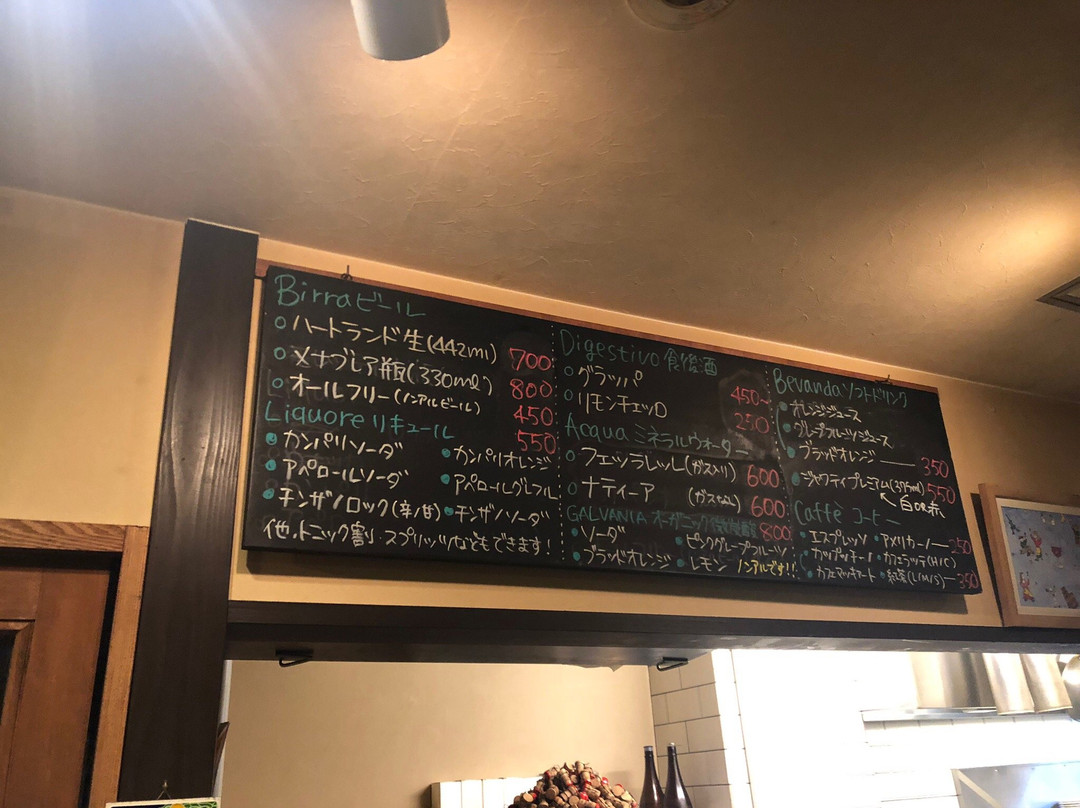 Birra ビール
・ハートランド生(442ml) 700
・メナブレア瓶(330ml) 800
・オールフリー(ノンアルビール) 450
Liquore リキュール 550
・カンパリソーダ ・カンパリオレンジ
・アペロールソーダ ・アペロールグレフル
・チンザノロック(辛/甘) ・チンザノソーダ
他、トニック割り・スプリッツァなどもできます!
Digestivo 食後酒
・グラッパ 450~
・リモンチェッロ 250
Acqua ミネラルウォーター
・フェッラレッレ(ガス入り) 600
・ナティーア (ガスなし) 600
GALVANIA オーガニック微炭酸 800
・ソーダ ・ピンクグレープフルーツ
・ブラッドオレンジ ・レモン ノンアルです!!
Bevanda ソフトドリンク
・オレンジジュース
・グレープフルーツジュース
・ブラッドオレンジ 350
・プレミアム(375ml) 550
白or赤
Caffé コーヒー
・エスプレッソ ・アメリカーノ 250
・カプッチーノ ・カフェラッテ(H/C)
・カフェマッキャート ・紅茶(L/M/S) 350